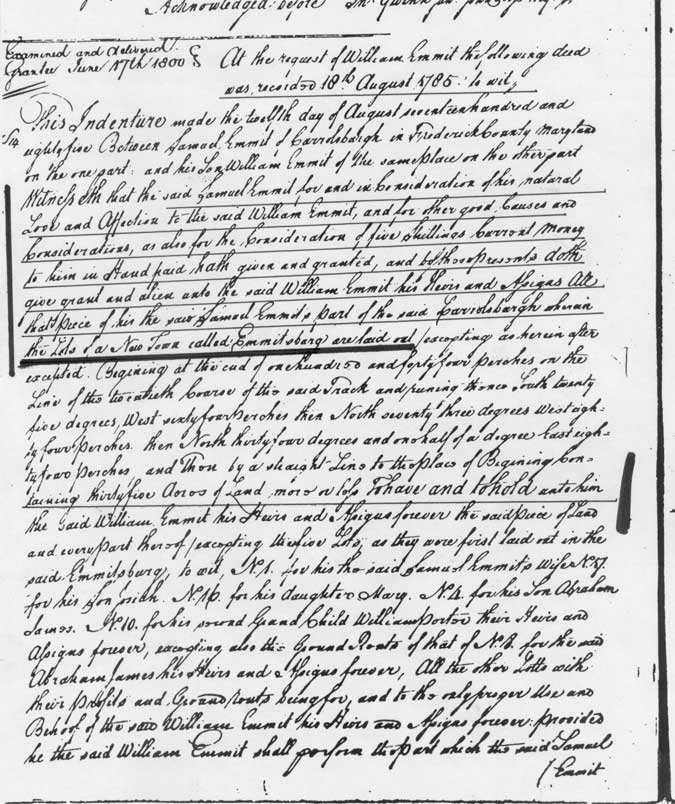 Acknowledged before Jno Gwinn
Examined and delivered
Grantee June 17th 1800
At the request of William Emmit the following deed
was recorded 18th August 1785. to wit,
This Indenture made the twelfth day of August seventeen hundred and
eighty five Between Samuel Emmit of Carrolsburgh in Frederick County Maryland
on the one part: and his Son William Emmit of the same place on the other part
Witnesseth that the said Samuel Emmit, for and in Consideration of his natural
Love and Affection to the said William Emmit, and for other good Causes and
Considerations, as also for the Consideration of five Shillings Current Money
to him in Hand paid hath given and granted, and by these presents doth
give grant and alien unto the said William Emmit his Heirs and Assigns All
that piece of his the said Samuel Emmit's part of the said Carrolsburgh wherein
the Lots of a New Town called Emmitsburg are laid out /excepting as herein after
excepted. Begining at the end of one hundred and forty four perches on the
Line of the twentieth Course of the said Track and runing thence South twenty
five degrees, West sixty four Perches then North seventy three degrees West eigh-
ty four Perches. then North thirty four degrees and one half of a degree East eigh-
ty four Perches and Then by a straight Line to the place of Begining Con-
taining thirty five Acres of Land, more or less To have and to hold unto him
the said William Emmit his Heirs and Assigns forever the said piece of Land
and every part thereof /excepting the five Lots, as they were first laid out in the
said Emmitsburg, to wit, N.1. for his the said Samuel Emmit's Wife N.57.
for his Son Josiah. N.16. for his daughter Mary. N.4. for his Son Abraham
James. N.10. for his second Grand Child William porter their Heirs and
Assigns forever, excepting also the Ground Rents of that of N.8. for the said
Abraham James his Heirs and Assigns forever, All the other Lotts with
their profits and Ground rents being for, and to the only proper Use and
Behoof of the said William Emmit his Heirs and Assigns forever: provided
he the said William Emmit shall perform the part which the said Samuel
Emmit